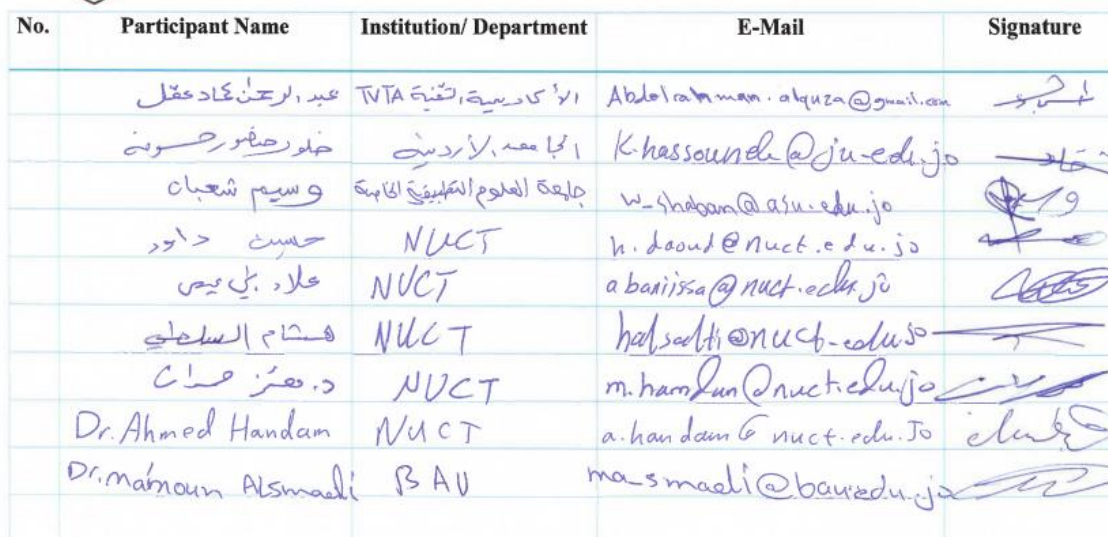 No. Participant Name Institution/ Department E-Mail Signature
عبد الرحمن عقل الأكاديمية التقنية TVTA Abdelrahman.alquza@gmail.com
خلود حسونة الجامعة الأردنية K.hassouneh@ju.edu.jo
وسيم شعبان جامعة العلوم التطبيقية الخاصة w_shaban@asu.edu.jo
حسين داود NUCT h.daoud@nuct.edu.jo
علاء بني عيسى NUCT abaniissa@nuct.edu.jo
هشام السلطي NUCT halsalti@nuct.edu.jo
د. معتز حمدان NUCT m.hamdun@nuct.edu.jo
Dr. Ahmed Handam NUCT a.handam@nuct.edu.Jo
Dr. Ma'moun ALSmadi BAU ma_smadi@bau.edu.jo